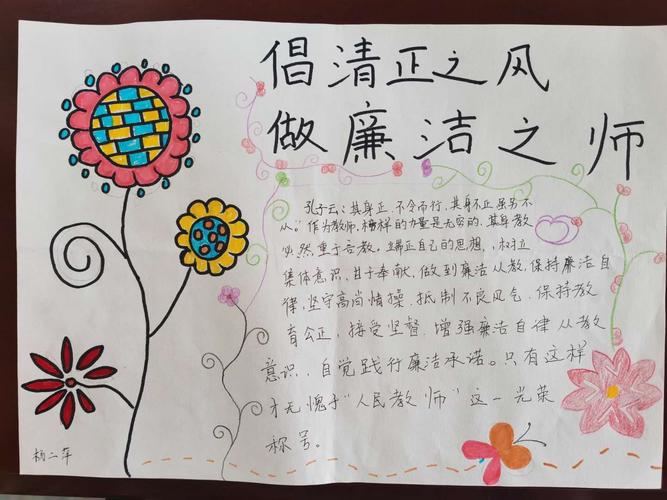 倡清正之风
做廉洁之师
孔子云：其身正，不令而行，其身不正虽另不
从。"作为教师，榜样的力量是无穷的，其身教
必然重于言教。端正自己的思想，树立
集体意识，甘于奉献，做到廉洁从教，保持廉洁自
律，坚守高尚情操，抵制不良风气，保持教
育公正，接受坚督，增强廉洁自律从教
意识，自觉践行廉洁承诺。只有这样
才无愧于"人民教师"这一光荣
称号。
杨二萍